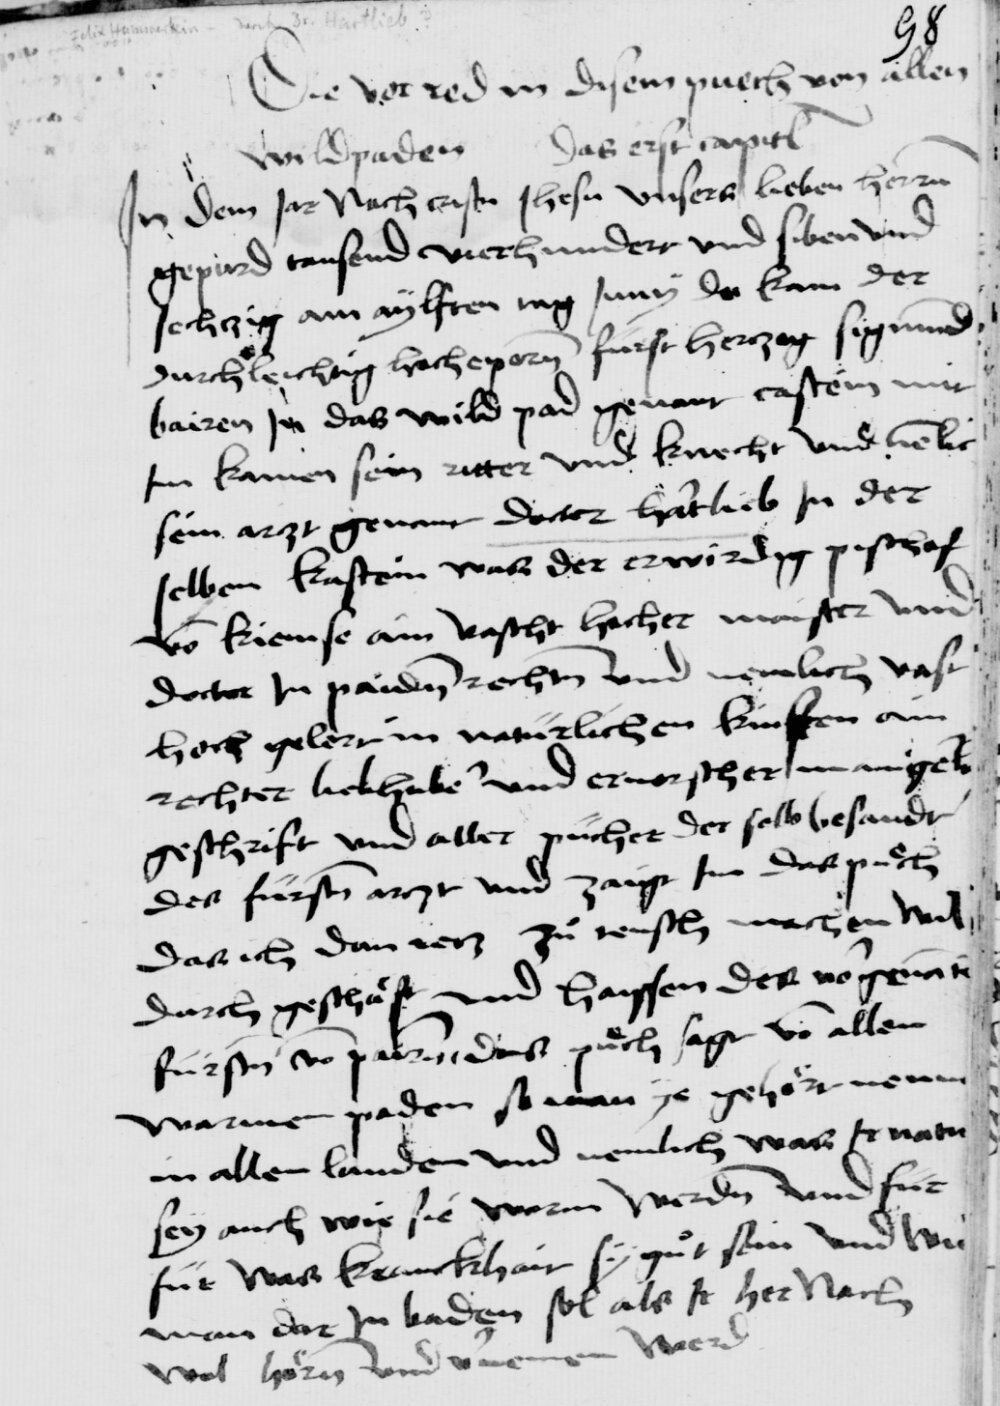 Felix Hammerlin - durch Dr. Hartlieb?
98
Die vor red in disem puech von allen
wildpaden das erst capitl
In dem jar Nach cristi Jhesu unsers lieben herrn
gepurd tausend vierhundert und siben und
sechzig am aylften tag Juny do kam der
durchleichtig hochgeporn fürst herczog sigmund
bairen In das wild pad genant castein mit
Im kamen sein ritter und knecht und
sein arzt genant doctor hartlieb In der
selben kastein was der erwirdig pischof
võ kiemse ain vascht hocher maister und
doctor In paidn rechtn und nemlich vast
hoch gelert in natürlichen künsten ain
rechter liebhaber und ervorscher manigerlei
geschrift und aller pücher der selb besandt
des fürstn arzt und zaigt Im das puͤch
das ich dan iecz zuͦ teusch machen wil
durch geschäft und haissen des vorgenãtñ
fürstñ võ pairn das puͤch sagt võ allen
warmen paden so man ye gehört nenn
in allen landen und nemlich was Ir natu
sey auch wie sie warm werdn und für
für was kranckhait sy guͦt sein und wie
man dar In baden sol als Ir her Nach
wol hörn und vernemen werd